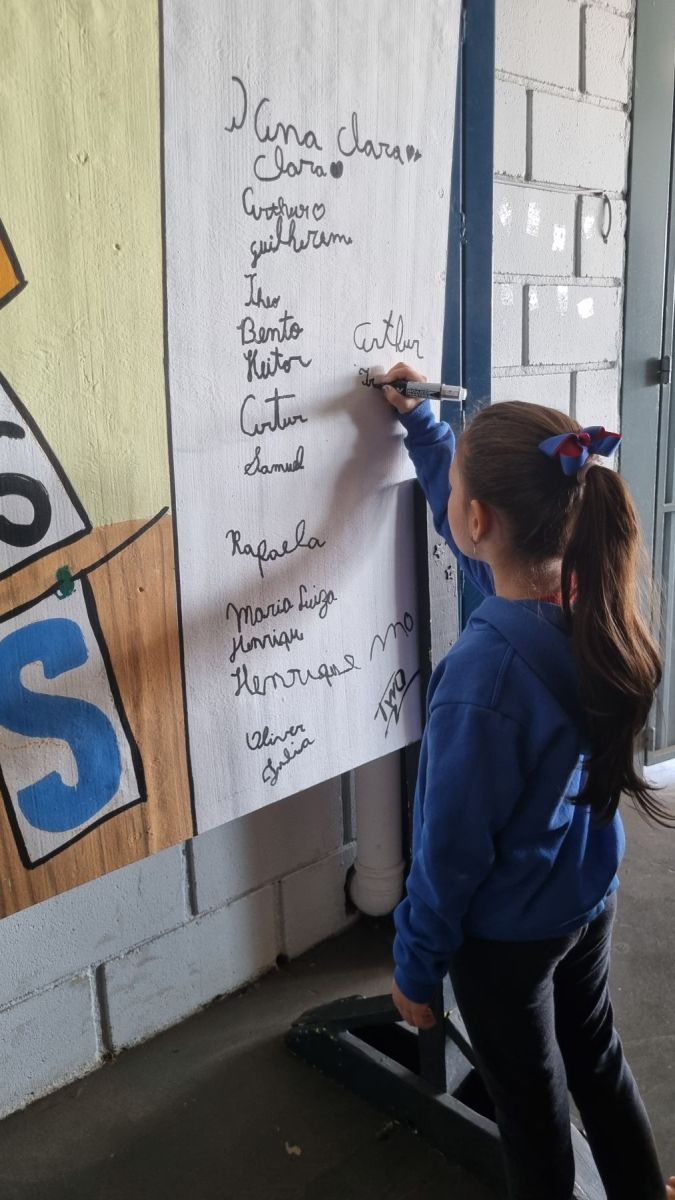 Ana Clara
Clara
Arthur
guilheram
Theo
Bento
Heitor
Arthur
Artur
Samuel
Rafaela
Maria Luiza
Henriqu
Henrique mo
Oliver
Julia
S
S